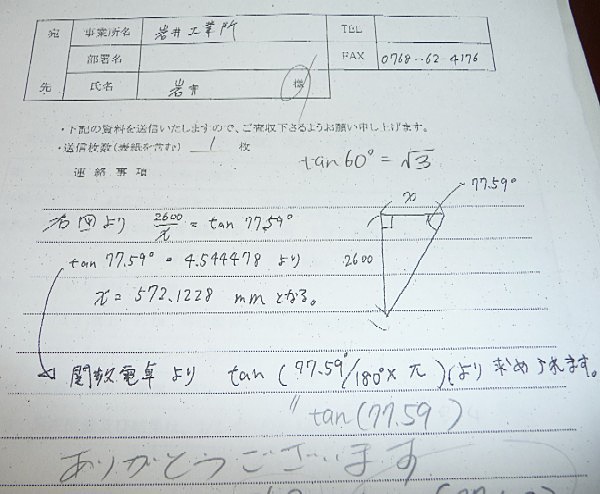 宛 事業所名 岩井工業所 TEL
部署名 FAX 0768-62-4176
先 氏名 岩 様
・下記の資料を送信いたしますので、ご査収下さるようお願い申し上げます。
・送信枚数(表紙を含む) 1 枚
連絡事項
tan60°=√3
x 77.59°
右図より 2600/x = tan 77.59°
tan 77.59° = 4.544478 より 2600
x = 572.1228 mm となる。
関数電卓より tan (77.59°/180° × π) より求められます。
〃 tan(77.59)
ありがとうございます